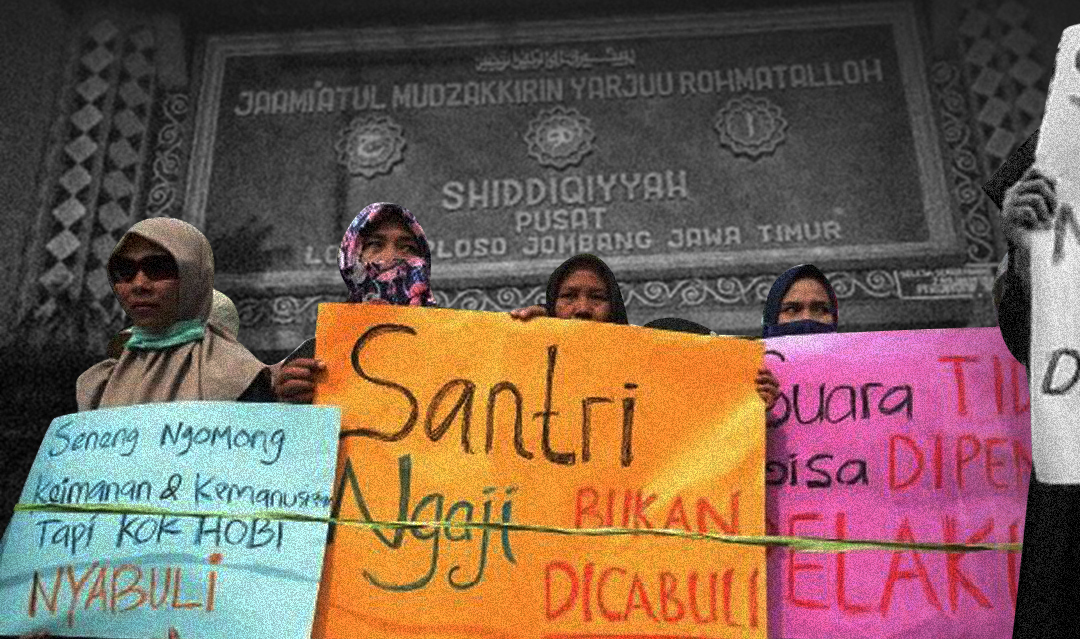 JAAMI'ATUL MUDZAKKIRIN YARJUU ROHMATALLOH
SHIDDIQIYYAH
PUSAT
PLOSO JOMBANG JAWA TIMUR
Seneng Ngomong
Keimanan & Kemanusiaan
Tapi KOK HOBI
NYABULi
Santri
Ngaji
BUKAN
DICABULI
Suara
bisa